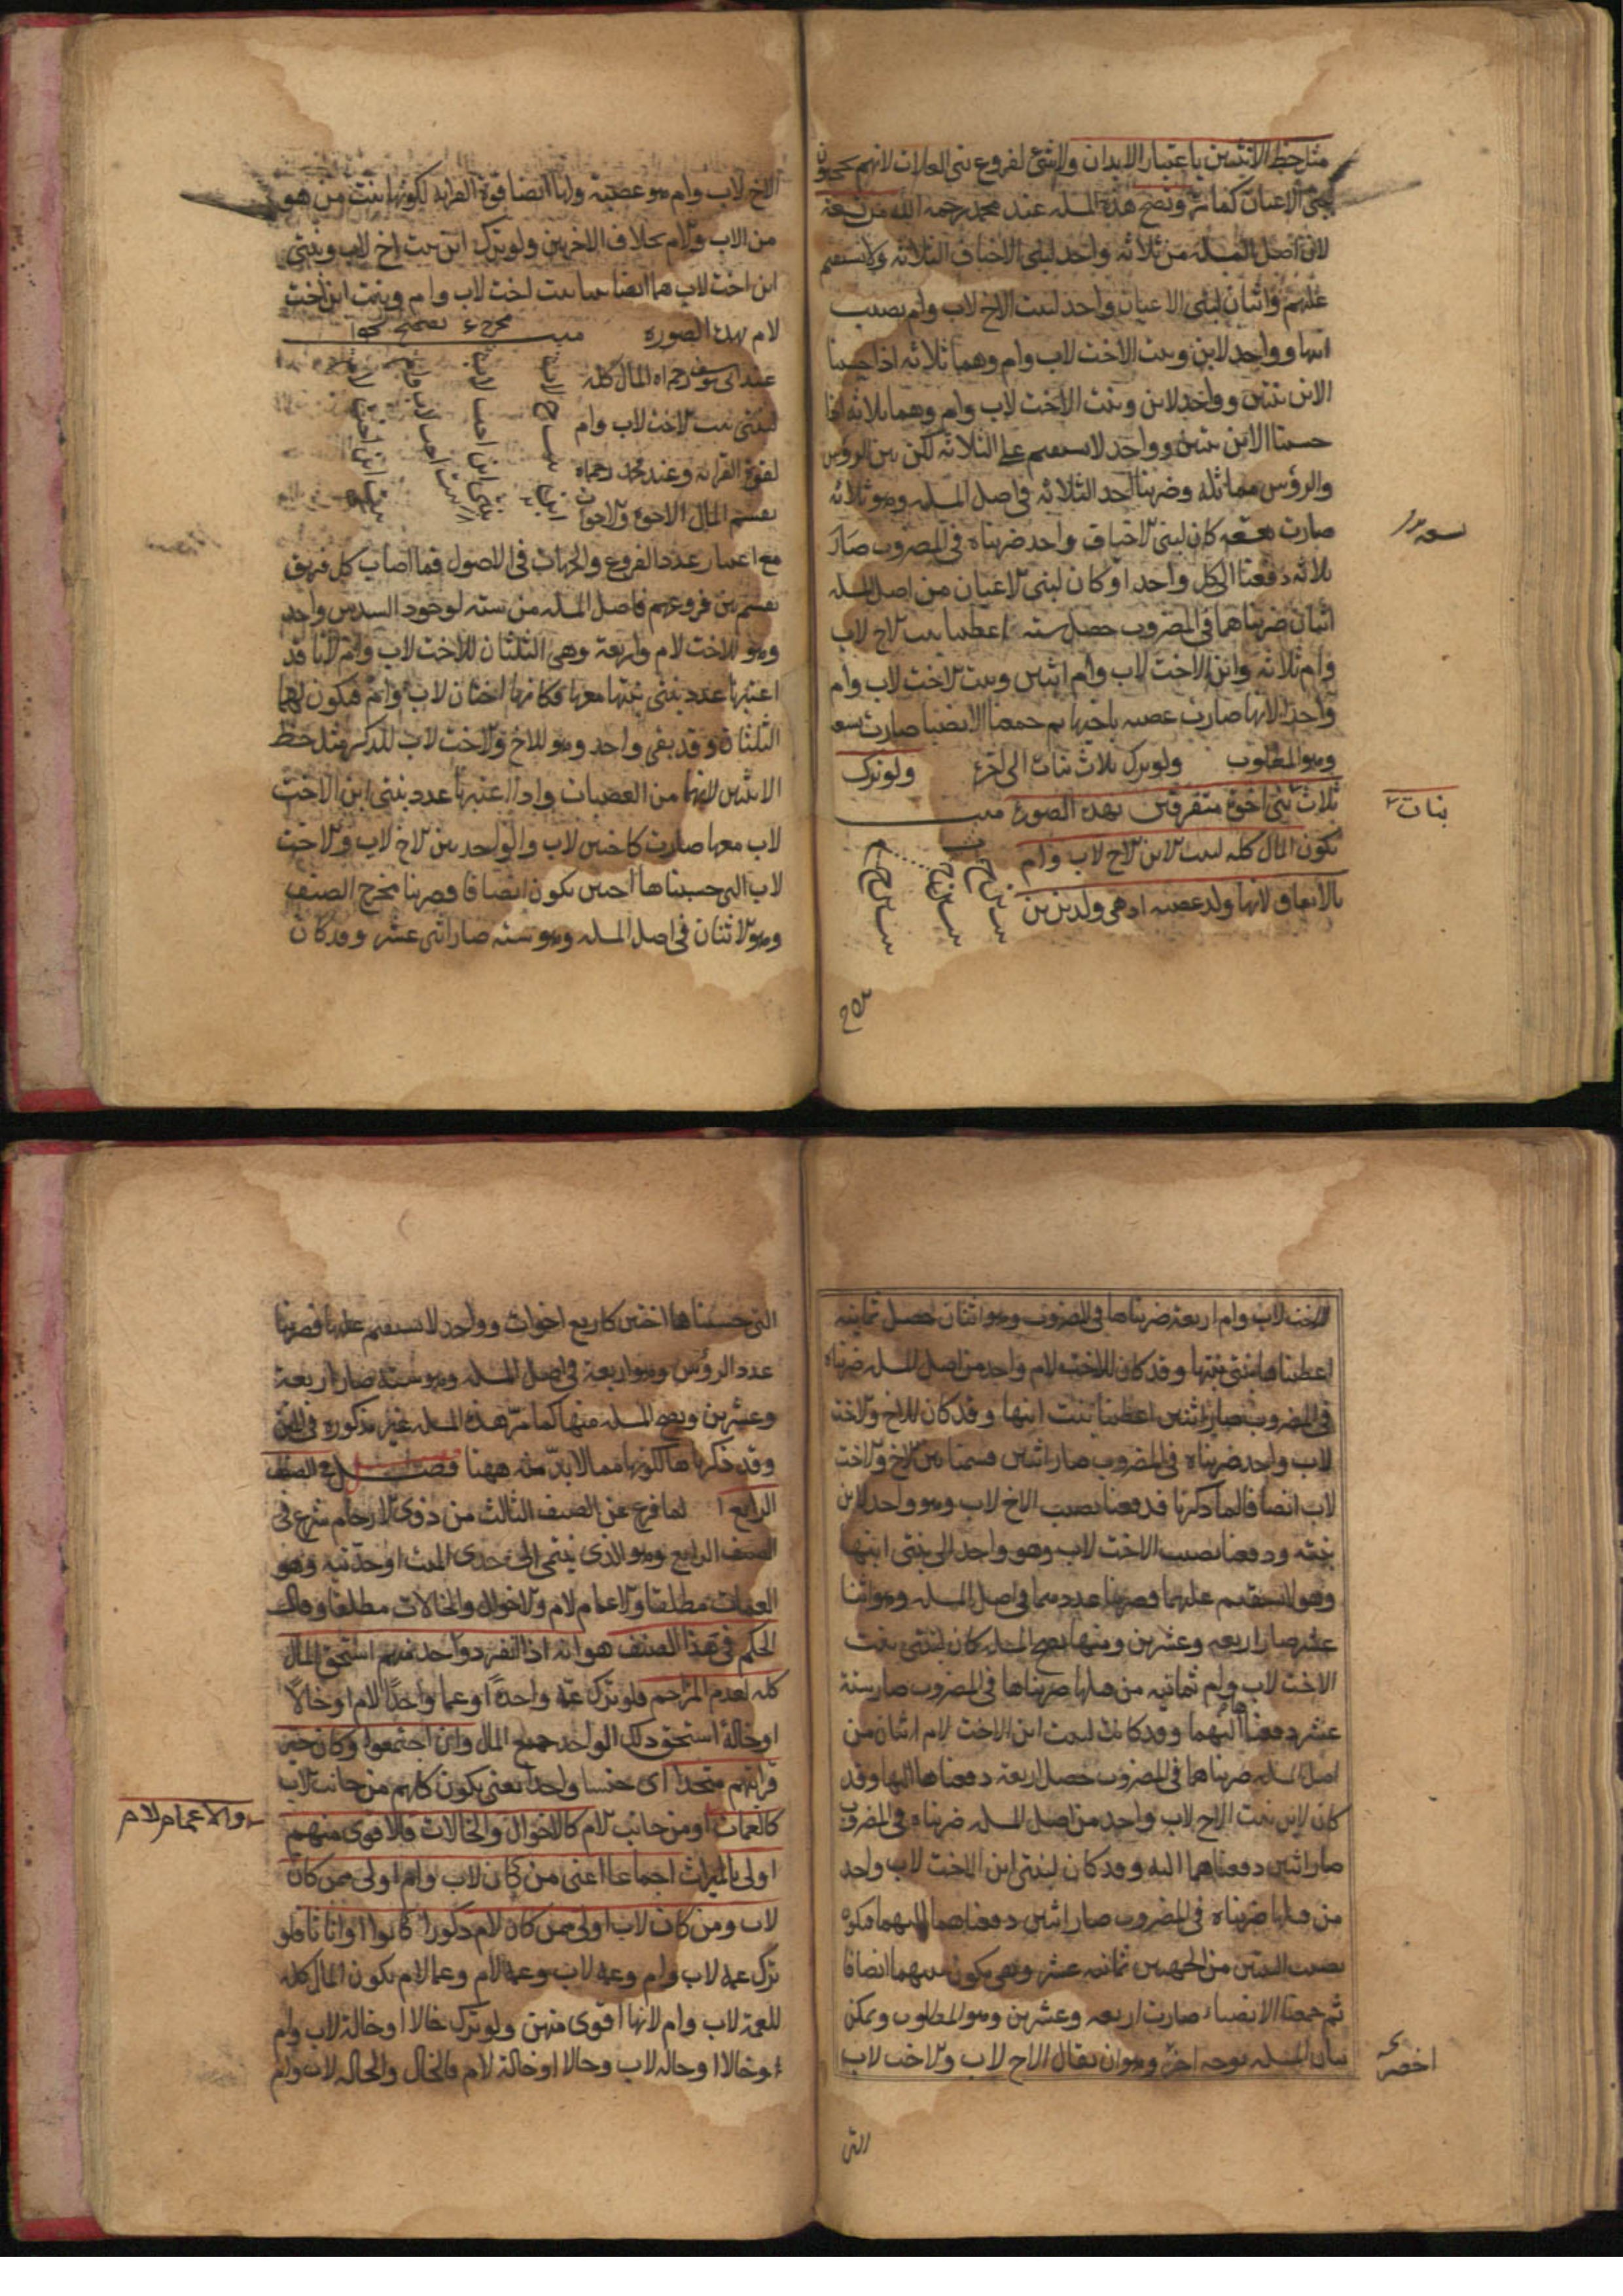 مثل حظ الانثيين باعتبار الابدان ولا شئ لفروع بنى العلات لانهم محجوبون
ببنى الاعيان كما مر وتصح هذه المسله عند محمد رحمه الله من تسعة
لان اصل المسله من ثلاثه واحد لبنى الاخياف الثلاثه ولا يستقيم
عليهم واثنان لبنى الاعيان واحد لبنت الاخ لاب وام نصيب
ابيها وواحد لابن وبنت الاخت لاب وام وهما ثلاثه اذا حسبنا
الابن بنتين وواحد لابن وبنت الاخت لاب وام وهما ثلاثه اذا
حسبنا الابن بنتين وواحد لا يستقيم على الثلاثه لكن بين الروس
والرؤس مماثله وضربنا احد الثلاثه فى اصل المسله وهو ثلاثه
صارت تسعه كان لبنى الاخياف واحد ضربناه فى المضروب صار
ثلاثه دفعنا الى كل واحد او كان لبنى الاعيان من اصل المسله
اثنان ضربناهما فى المضروب حصل سته اعطينا بنت الاخ لاب
وام ثلاثه وابن الاخت لاب وام اثنين وبنت الاخت لاب وام
واحدا لانها صارت عصبه باخيها ثم جمعنا الانصبا صارت تسعه
وهو المطلوب ولو ترك ثلاث بنات الى اخره ولو ترك
ثلاث بنى اخوة متفرقين بهذه الصورة ميت
يكون المال كله لبنت الابن الاخ لاب وام
بالاتفاق لانها ولد عصبه اذ هى ولد بن بن
تسعه
بنات
الاخ لاب وام وهو عصبة ولها ايضا قوة القرابه لكونها بنت من هو
من الاب والام بخلاف الاخريين ولو ترك ابن بنت اخ لاب وبنتى
ابن اخت لاب هما ايضا بنتا بنت اخت لاب وام وبنت ابن اخت
لام بهذه الصوره ميت
عند ابى يوسف رحمه الله المال كله
لبنتى بنت الاخت لاب وام
لقوة القرابه وعند محمد رحمه الله
يقسم المال الاخوة والاخوات
مع اعتبار عدد الفروع والجهات فى الاصول فما اصاب كل فريق
يقسم بين فروعهم فاصل المسله من سته لوجود السدس واحد
وهو للاخت لام واربعة وهى الثلثان للاخت لاب وام لانا قد
اعتبرنا عدد بنتى بنتها معها فكانها اختان لاب وام فيكون لهما
الثلثان وقد بقى واحد وهو للاخ والاخت لاب للذكر مثل حظ
الانثيين لانهما من العصبات واذا اعتبرنا عدد بنتى ابن الاخت
لاب معها صارت كاختين لاب والواحد بين الاخ لاب والاخت
لاب التى حسبناها اختين يكون انصافا فضربنا مخرج النصف
وهو الاثنان فى اصل المسله وهو سته صار اثنى عشر وقد كان
للاخت لاب وام اربعة ضربناها فى المضروب وهو اثنان حصل ثمانيه
اعطيناها بنتى بنتها وقد كان للاخت لام واحد من اصل المسله ضربناه
فى المضروب صار اثنين اعطينا بنت ابنها وقد كان للاخ والاخت
لاب واحد ضربناه فى المضروب صار اثنين قسمنا بين الاخ والاخت
لاب انصافا لما ذكرنا فدفعنا نصيب الاخ لاب وهو واحد لابن
بنته ودفعنا نصيب الاخت لاب وهو واحد الى بنتى ابنها
وهو لا يستقيم عليهما فضربنا عددهما فى اصل المسله وهو اثنا
عشر صار اربعه وعشرين ومنها تصح المسله كان لبنتى بنت
الاخت لاب وام ثمانيه من قبلها ضربناها فى المضروب صار ستة
عشر دفعناها اليهما وقد كانت لبنت ابن الاخت لام اثنان من
اصل المسله ضربناهما فى المضروب حصل اربعة دفعناها اليها وقد
كان لابن بنت الاخ لاب واحد من اصل المسله ضربناه فى المضروب
صار اثنين دفعناهما اليه وقد كان لبنتى ابن الاخت لاب واحد
من قبلها ضربناه فى المضروب صار اثنين دفعناهما اليهما فيكون
نصيب البنتين من الجهتين ثمانيه عشر وهى يكون بينهما انصافا
ثم جمعنا الانصباء صارت اربعه وعشرين وهو المطلوب ويمكن
بيان المسله بوجه اخر وهو ان يقال الاخ لاب والاخت لاب
اخصر
التى
التى حسبناها اختين كاربع اخوات وواحد لا يستقيم عليها فضربنا
عدد الرؤس وهو اربعة فى اصل المسله وهو سته صار اربعة
وعشرين وتصح المسله منها كما مر هذه المسله غير مذكوره فى المتن
وقد ذكرناها لكونها مما لا بد منه ههنا فصل فى الصنف
الرابع لما فرغ عن الصنف الثالث من ذوى الارحام شرع فى
الصنف الرابع وهو الذى ينتمى الى جدى الميت او جدتيه وهو
العمات مطلقا والاعمام لام والاخوال والخالات مطلقا وقال
الحكم فى هذا الصنف هو انه اذا انفرد واحد منهم استحق المال
كله لعدم المزاحم فلو ترك عمة واحدة او عما واحدا لام او خالا
او خالة استحق ذلك الواحد جميع المال وان اجتمعوا وكان حيز
قرابتهم متحدا اى جنسا واحدا يعنى يكون كلهم من جانب الاب
كالعمات او من جانب الام كالاخوال والخالات فالاقوى منهم
اولى بالميراث اجماعا اعنى من كان لاب وام اولى ممن كان
لاب ومن كان لاب اولى ممن كان لام ذكورا كانوا او اناثا فلو
ترك عمه لاب وام وعمه لاب وعمه لام وعما لام يكون المال كله
للعمة لاب وام لانها اقوى منهن ولو ترك خالا او خالة لاب وام
او خالا او خاله لاب وخالا او خالة لام فالخال والخاله لاب وام
والاعمام لام